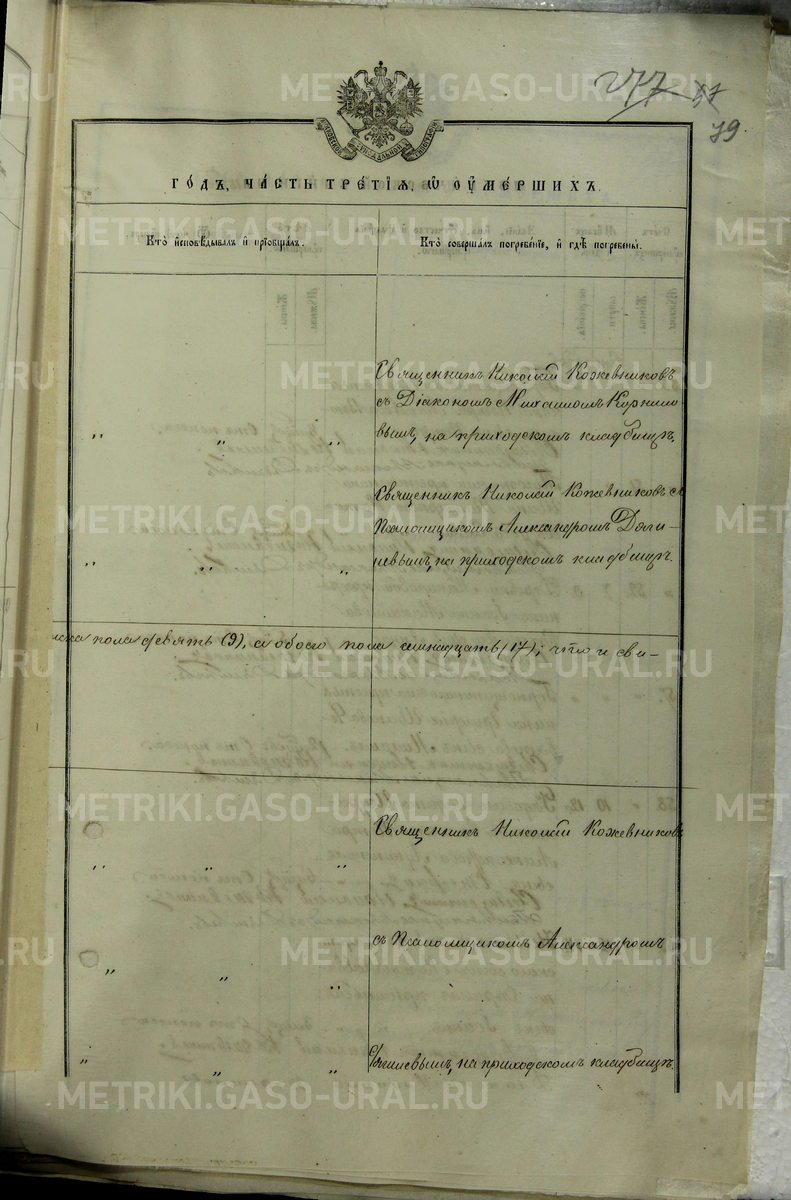 277
79
ГО́ДЪ, ЧА́СТЬ ТРЕ́ТІѦ, Ѡ ОУ҆МЕ́РШИХЪ.
Кто̀ и҆сповѣ́дывалъ и҆ прїѡбща́лъ.
Кто̀ соверша́лъ погребе́нїе, и҆ гдѣ̀ погребены̀.
Священникъ Николай Кожевниковъ
съ Діакономъ Михаиломъ Корнило
„ „ „ вымъ, на приходскомъ кладбищѣ.
Священникъ Николай Кожевниковъ съ
Псаломщикомъ Александромъ
„ „ „ на приходскомъ кладбищѣ.
пола девять (9), а обоего пола семнадцать (17); что и сви-
Священникъ Николай Кожевниковъ
„ „ „
съ Псаломщикомъ Александромъ
„ „ „
на приходскомъ кладбищѣ.
„ „ „
METRIKI.GASO-URAL.RU